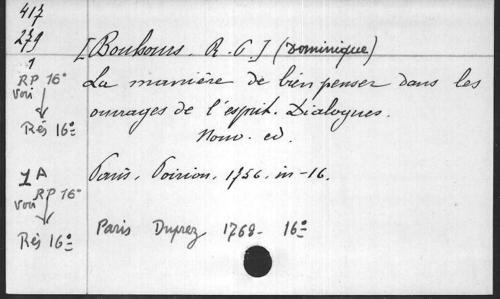 417
279
1
[Bouhours. R. P.] (Dominique)
RP 16°
voir
La manière de bien penser dans les
ouvrages de l'esprit. Dialogues.
Rés 16°
Nouv. ed.
1 A
Paris. Poirion. 1756. in-16.
RP 16°
voir
Rés 16°
Paris Duprez 1768- 16°